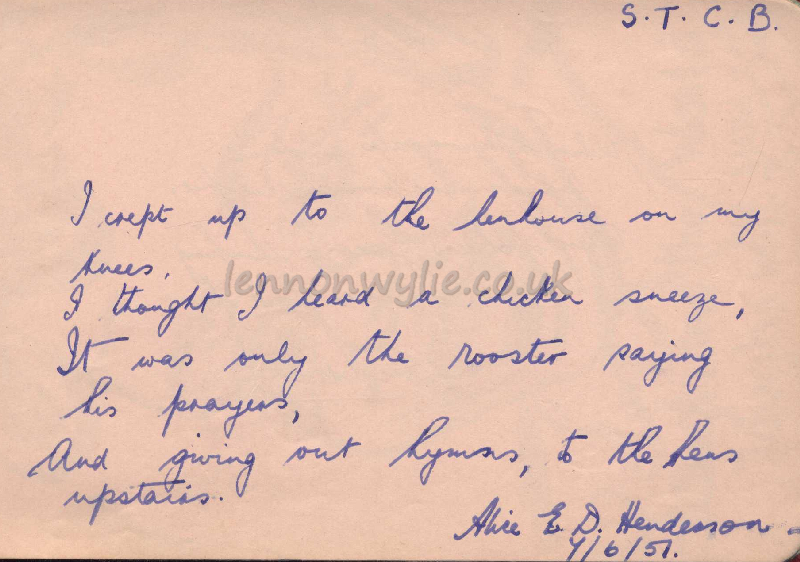 S.T.C.B.
I crept up to the henhouse on my
knees.
lennonwylie.co.uk
I thought I heard a chicken sneeze,
It was only the rooster saying
his prayers,
And giving out hymns, to the hens
upstairs.
Alice E. D. Henderson
7/6/51.